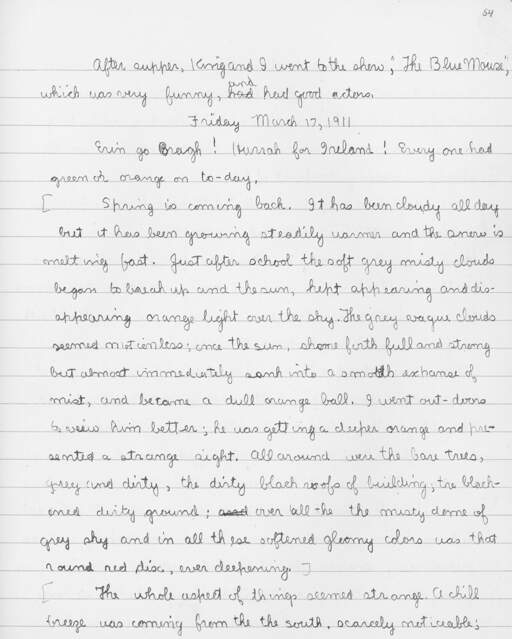 54
After supper, King and I went to the show, "The Blue Mouse",
which was very funny, and had good actors.
Friday March 17, 1911
Erin go Bragh! Hurrah for Ireland! Every one had
green or orange on to-day.
[ Spring is coming back. It has been cloudy all day
but it has been growing steadily warmer and the snow is
melting fast. Just after school the soft grey misty clouds
began to break up and the sun, kept appearing and dis-
appearing orange light over the sky. The grey vague clouds
seemed motionless; once the sun, shone forth full and strong
but almost immediately sank into a smooth expanse of
mist, and became a dull orange ball. I went out-doors
to view him better; he was getting a deeper orange and pre-
sented a strange sight. All around were the bare trees,
grey and dirty, the dirty black roofs of building; the black-
ened dirty ground; over all the the misty dome of
grey sky and in all these softened gloomy colors was that
round red disc, ever deepening. ]
[ The whole aspect of things seemed strange. A chill
breeze was coming from the the south, scarcely noticeable;